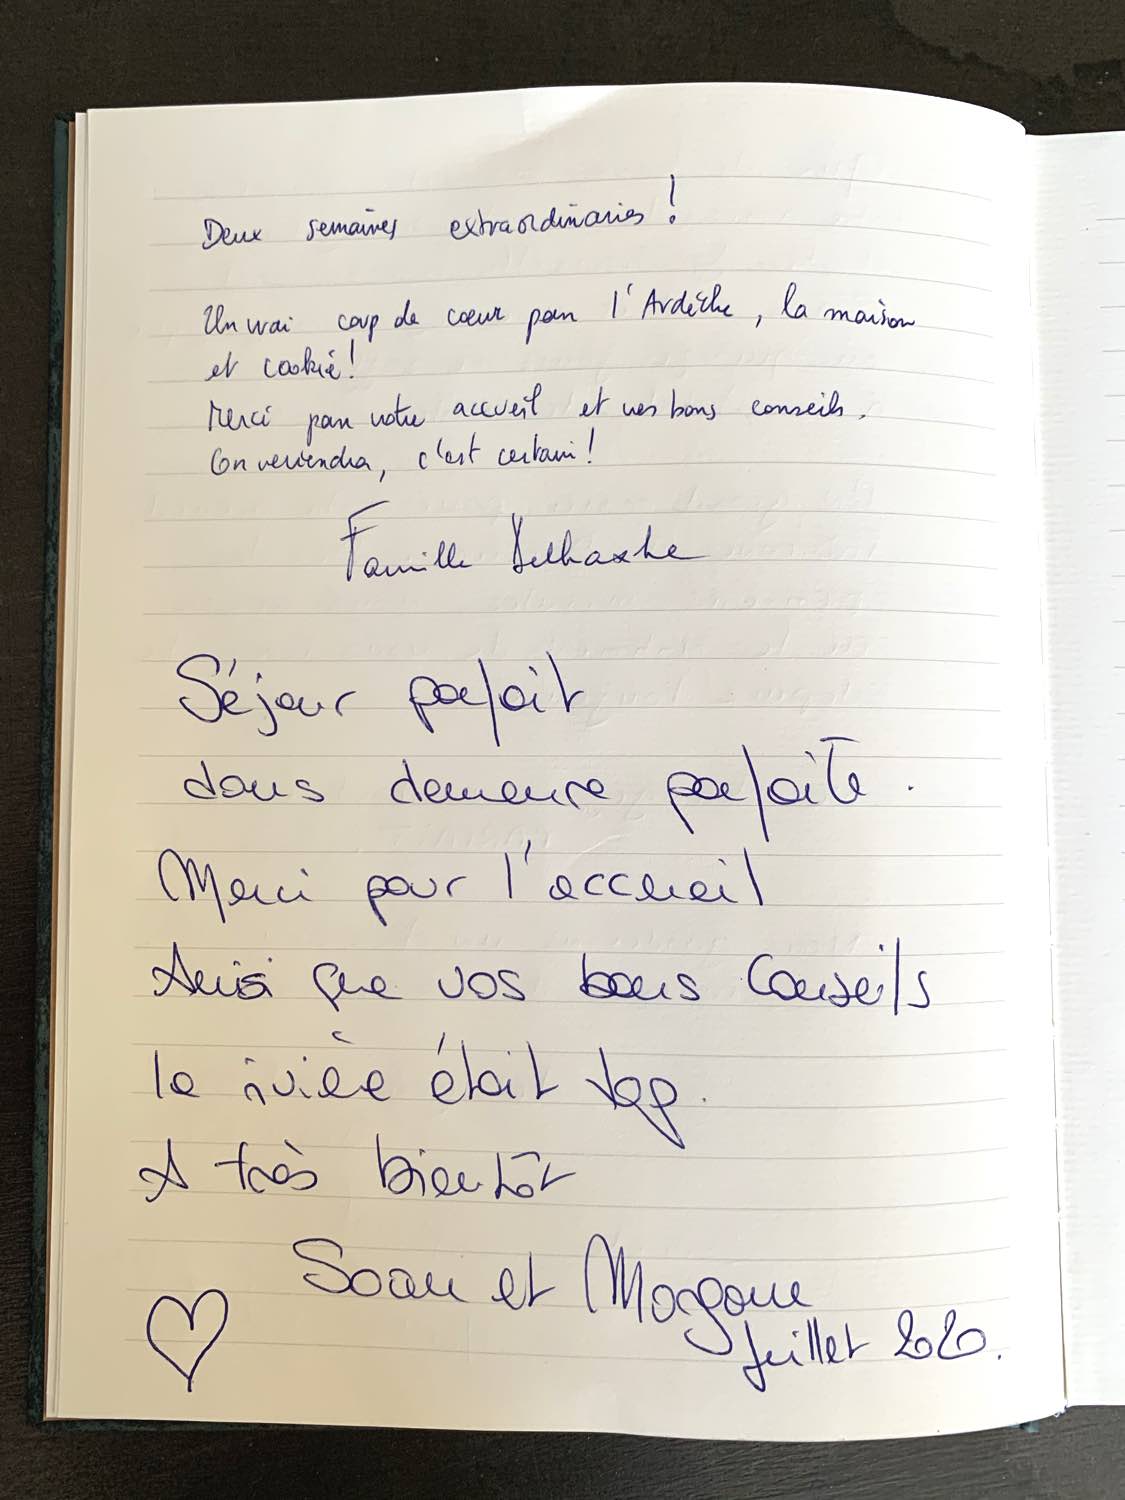 Deux semaines extraordinaires !
Un vrai coup de coeur pour l'Ardèche, la maison
et cookie !
Merci pour votre accueil et vos bons conseils.
On reviendra, c'est certain !
Famille Delhaxhe
Séjour parfait
dans demeure parfaite.
Merci pour l'accueil
Ainsi que vos bons conseils
la rivière était top.
A très bientôt
Soan et Morgane
Juillet 2020.